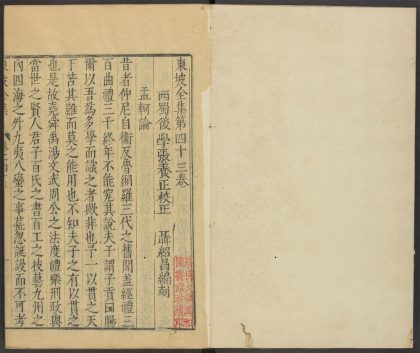 東坡全集第四十三卷
西蜀後學張養正校正　聶紹昌編刻
孟軻論
昔者仲尼自衛反魯網羅三代之舊聞蓋經禮三
百曲禮三千終年不能究其說夫子謂子貢曰賜
爾以吾為多學而識之者歟非也予一以貫之天
下苦其難而莫之能用也不知夫子之有以貫之
也是故堯舜禹湯文武周公之法度禮樂刑政與
當世之賢人君子百氏之書百工之技藝九州之
內四海之外九夷八蠻之事荒忽誕謾而不可考